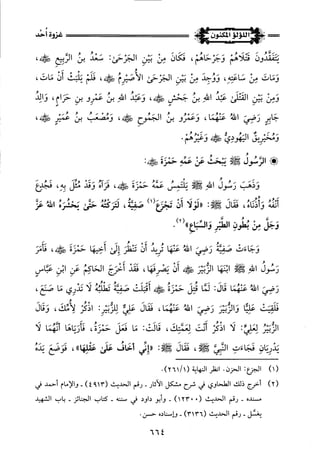 اللؤلؤ المكنون
غزوة أحد
يَتَفَقَّدُونَ قَتْلَاهُمْ وَجَرْحَاهُمْ، فَكَانَ مِنْ بَيْنِ الجَرْحَىٰ: سَعْدُ بنُ الرَّبِيعِ ﷺ،
وَمَاتَ مِنْ سَاعَتِهِ، وَوُجِدَ مِنْ بَيْنِ الجَرْحَىٰ الأُصَيْرِمُ ﷺ، فَلَمْ يَلْبَثْ أَنْ مَاتَ،
وَمِنْ بَيْنِ القَتْلَىٰ عَبْدُ اللهِ بنُ جَحْشٍ ﷺ، وَعَبْدُ اللهِ بنُ عَمْرِو بنِ حَرَامٍ، وَالِدُ
جَابِرٍ رَضِيَ اللهُ عَنْهُمَا، وَعَمْرُو بنُ الجَمُوحِ ﷺ، وَمُصْعَبُ بنُ عُمَيْرٍ ﷺ،
وَمُخَيْرِيقٌ اليَهُودِيُّ وَغَيْرُهُمْ.
الرَّسُولُ ﷺ يَبْحَثُ عَنْ عَمِّهِ حَمْزَةَ ﷺ:
وَذَهَبَ رَسُولُ اللهِ ﷺ يَلْتَمِسُ عَمَّهُ حَمْزَةَ ﷺ، فَرَآهُ وَقَدْ مُثِّلَ بِهِ، فَجُدِعَ
أَنْفُهُ وَأُذُنَاهُ، فَقَالَ ﷺ: «لَوْلَا أَنْ تَجْزَعَ(١) صَفِيَّةُ، لَتَرَكْتُهُ حَتَّىٰ يَحْشُرَهُ اللهُ عَزَّ
وَجَلَّ مِنْ بُطُونِ الطَّيْرِ وَالسِّبَاعِ»(٢).
وَجَاءَتْ صَفِيَّةُ رَضِيَ اللهُ عَنْهَا تُرِيدُ أَنْ تَنْظُرَ إِلَىٰ أَخِيهَا حَمْزَةَ ﷺ، فَأَمَرَ
رَسُولُ اللهِ ﷺ ابْنَهَا الزُّبَيْرَ ﷺ أَنْ يَصْرِفَهَا، فَقَدْ أَخْرَجَ الحَاكِمُ عَنِ ابْنِ عَبَّاسٍ
رَضِيَ اللهُ عَنْهُمَا قَالَ: لَمَّا قُتِلَ حَمْزَةُ ﷺ أَقْبَلَتْ صَفِيَّةُ تَطْلُبُهُ لَا تَدْرِي مَا صَنَعَ،
فَلَقِيَتْ عَلِيًّا وَالزُّبَيْرَ رَضِيَ اللهُ عَنْهُمَا، فَقَالَ عَلِيٌّ لِلزُّبَيْرِ: اذْكُرْ لِأُمِّكَ، وَقَالَ
الزُّبَيْرُ لِعَلِيٍّ: لَا اذْكُرْ أَنْتَ لِعَمَّتِكَ، قَالَتْ: مَا فَعَلَ حَمْزَةُ، فَأَرَيَاهَا أَنَّهُمَا لَا
يَدْرِيَانِ فَجَاءَتِ النَّبِيَّ ﷺ، فَقَالَ ﷺ: «إِنِّي أَخَافُ عَلَىٰ عَقْلِهَا»، فَوَضَعَ يَدَهُ
(١) الجزع: الحزن. انظر النهاية (٢٦١/١).
(٢) أخرج ذلك الطحاوي في شرح مشكل الآثار - رقم الحديث (٤٩١٣) - والإمام أحمد في
مسنده - رقم الحديث (١٢٣٠٠) - وأبو داود في سننه - كتاب الجنائز - باب الشهيد
يغسّل - رقم الحديث (٣١٣٦) - وإسناده حسن.
٦٦٤